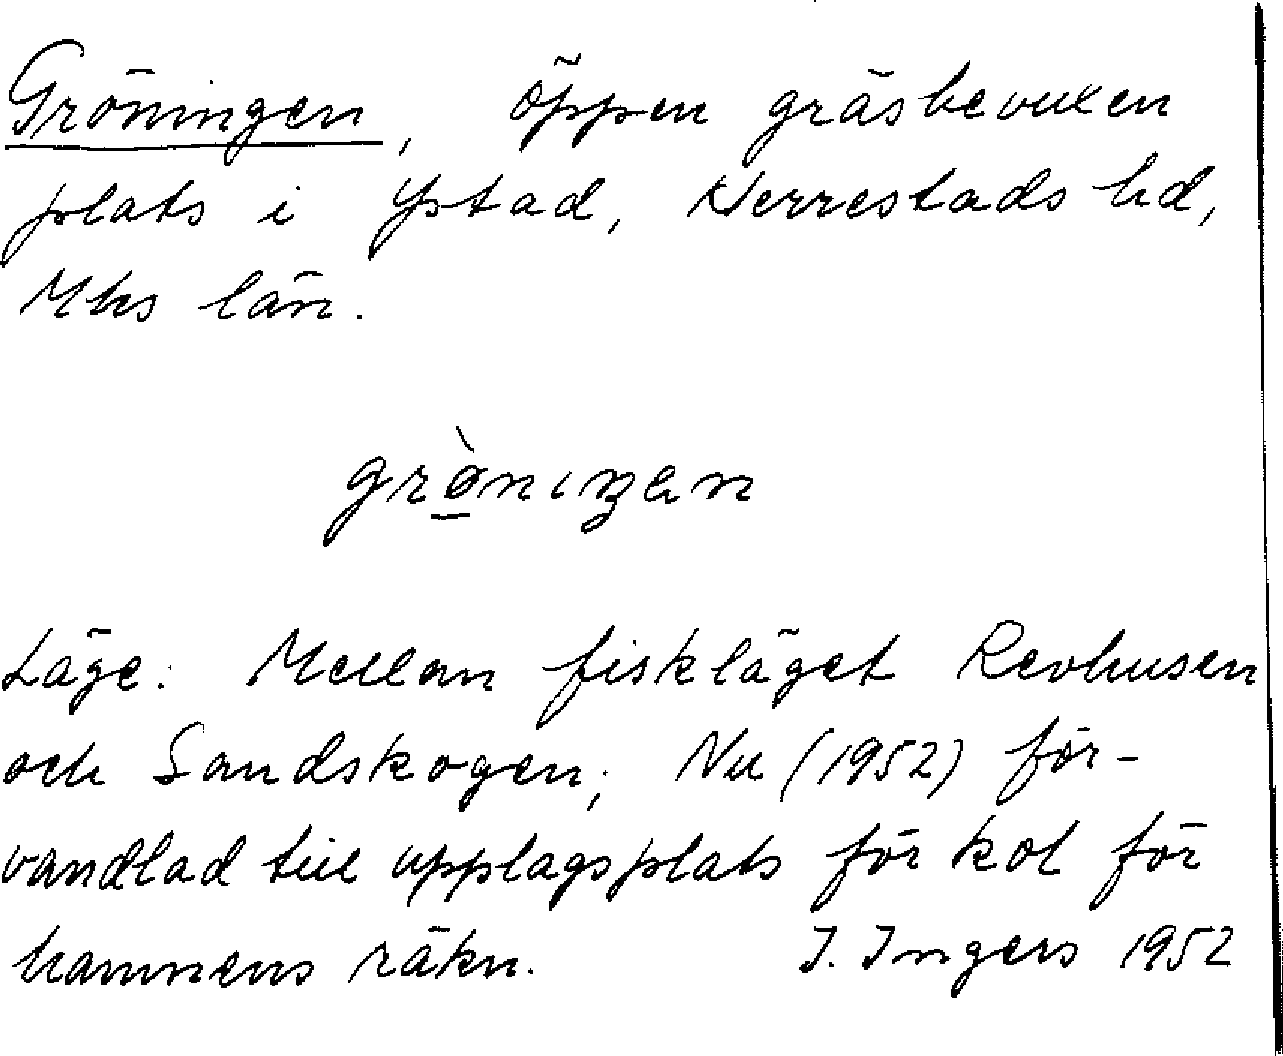 Gröningen, öppen gräsbevuxen
plats i Ystad, Herrestads hd,
Mhs län.
grö̀nıŋen
Läge: Mellan fiskläget Revhusen
och Sandskogen; Nu (1952) för-
vandlad till upplagsplats för kol för
hamnens räkn. I. Ingers 1952